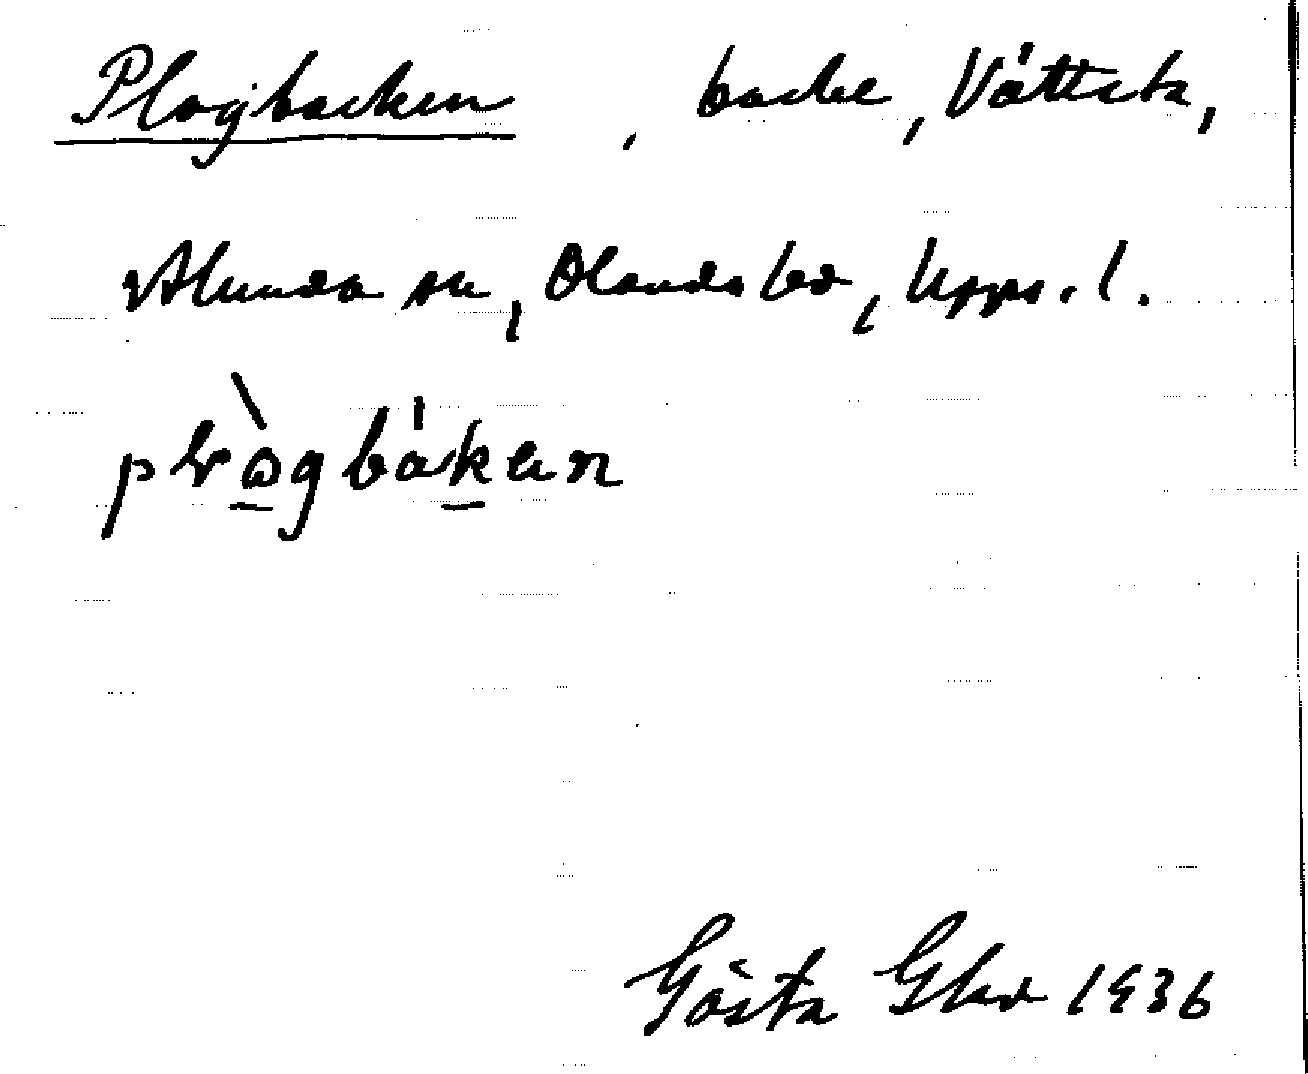 Plogbacken, backe, Vättsta,
Alunda sn, Olands hd, Upps. l.
plògbákən
Gösta Ekd 1936